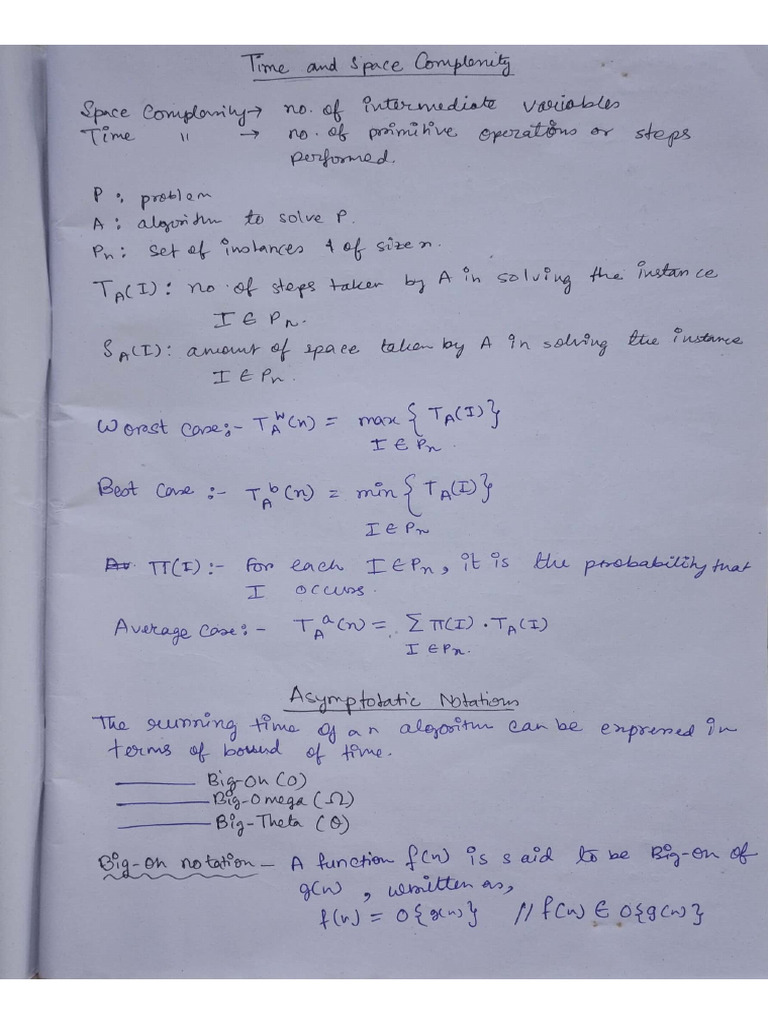 Time and Space Complexity
Space Complexity → no. of intermediate variables
Time " → no. of primitive operations or steps
performed.
P : problem
A : algorithm to solve P.
Pn : set of instances of size n.
TA(I) : no. of steps taken by A in solving the instance
I ∈ Pn.
SA(I) : amount of space taken by A in solving the instance
I ∈ Pn.
Worst case :- TAᵂ(n) = max { TA(I)}
I ∈ Pn.
Best case :- TAᵇ(n) = min { TA(I)}
I ∈ Pn
Π(I) :- For each I ∈ Pn, it is the probability that
I occurs.
Average case :- TAᵃ(n) = Σ Π(I) . TA(I)
I ∈ Pn.
Asymptotatic Notations
The running time of an algorithm can be expressed in
terms of bound of time.
Big-Oh (O)
Big-Omega (Ω)
Big-Theta (θ)
Big-oh notation – A function f(n) is said to be Big-oh of
g(n), written as,
f(n) = O{g(n)} // f(n) ∈ O{g(n)}